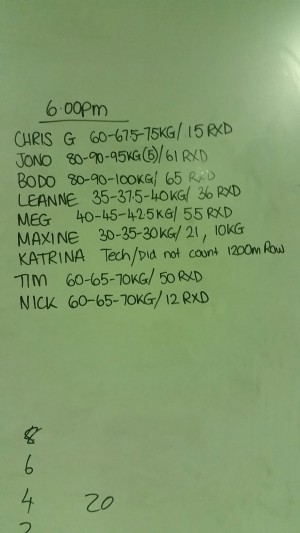 6.00pm
CHRIS G 60-67.5-75KG/ 15 RXD
JONO 80-90-95KG(5)/61 RXD
BODO 80-90-100KG/ 65 RXD
LEANNE 35-37.5-40KG/ 36 RXD
MEG 40-45-42.5KG/ 55 RXD
MAXINE 30-35-30KG/ 21, 10KG
KATRINA Tech/Did not count 1200m Row
TIM 60-65-70KG/ 50 RXD
NICK 60-65-70KG/ 12 RXD
8
6
4 20
2